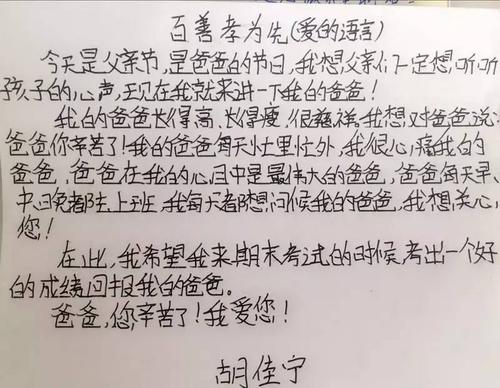 百善孝为先(爱的语言)
今天是父亲节,是爸爸的节日,我想父亲们一定想,听听
孩子的心声,现在我就来讲一下我的爸爸!
我的爸爸长得高、长得瘦,很慈祥,我想对爸爸说:
爸爸你辛苦了!我的爸爸每天忙里忙外,我很心痛我的
爸爸,爸爸在我的心目中是最伟大的爸爸,爸爸每天早、
中、晚都去上班,我每天都想问候我的爸爸,我想关心,
您!
在此,我希望我来期末考试的时候,考出一个好
的成绩,回报我的爸爸。
爸爸,您辛苦了!我爱您!
胡佳宁